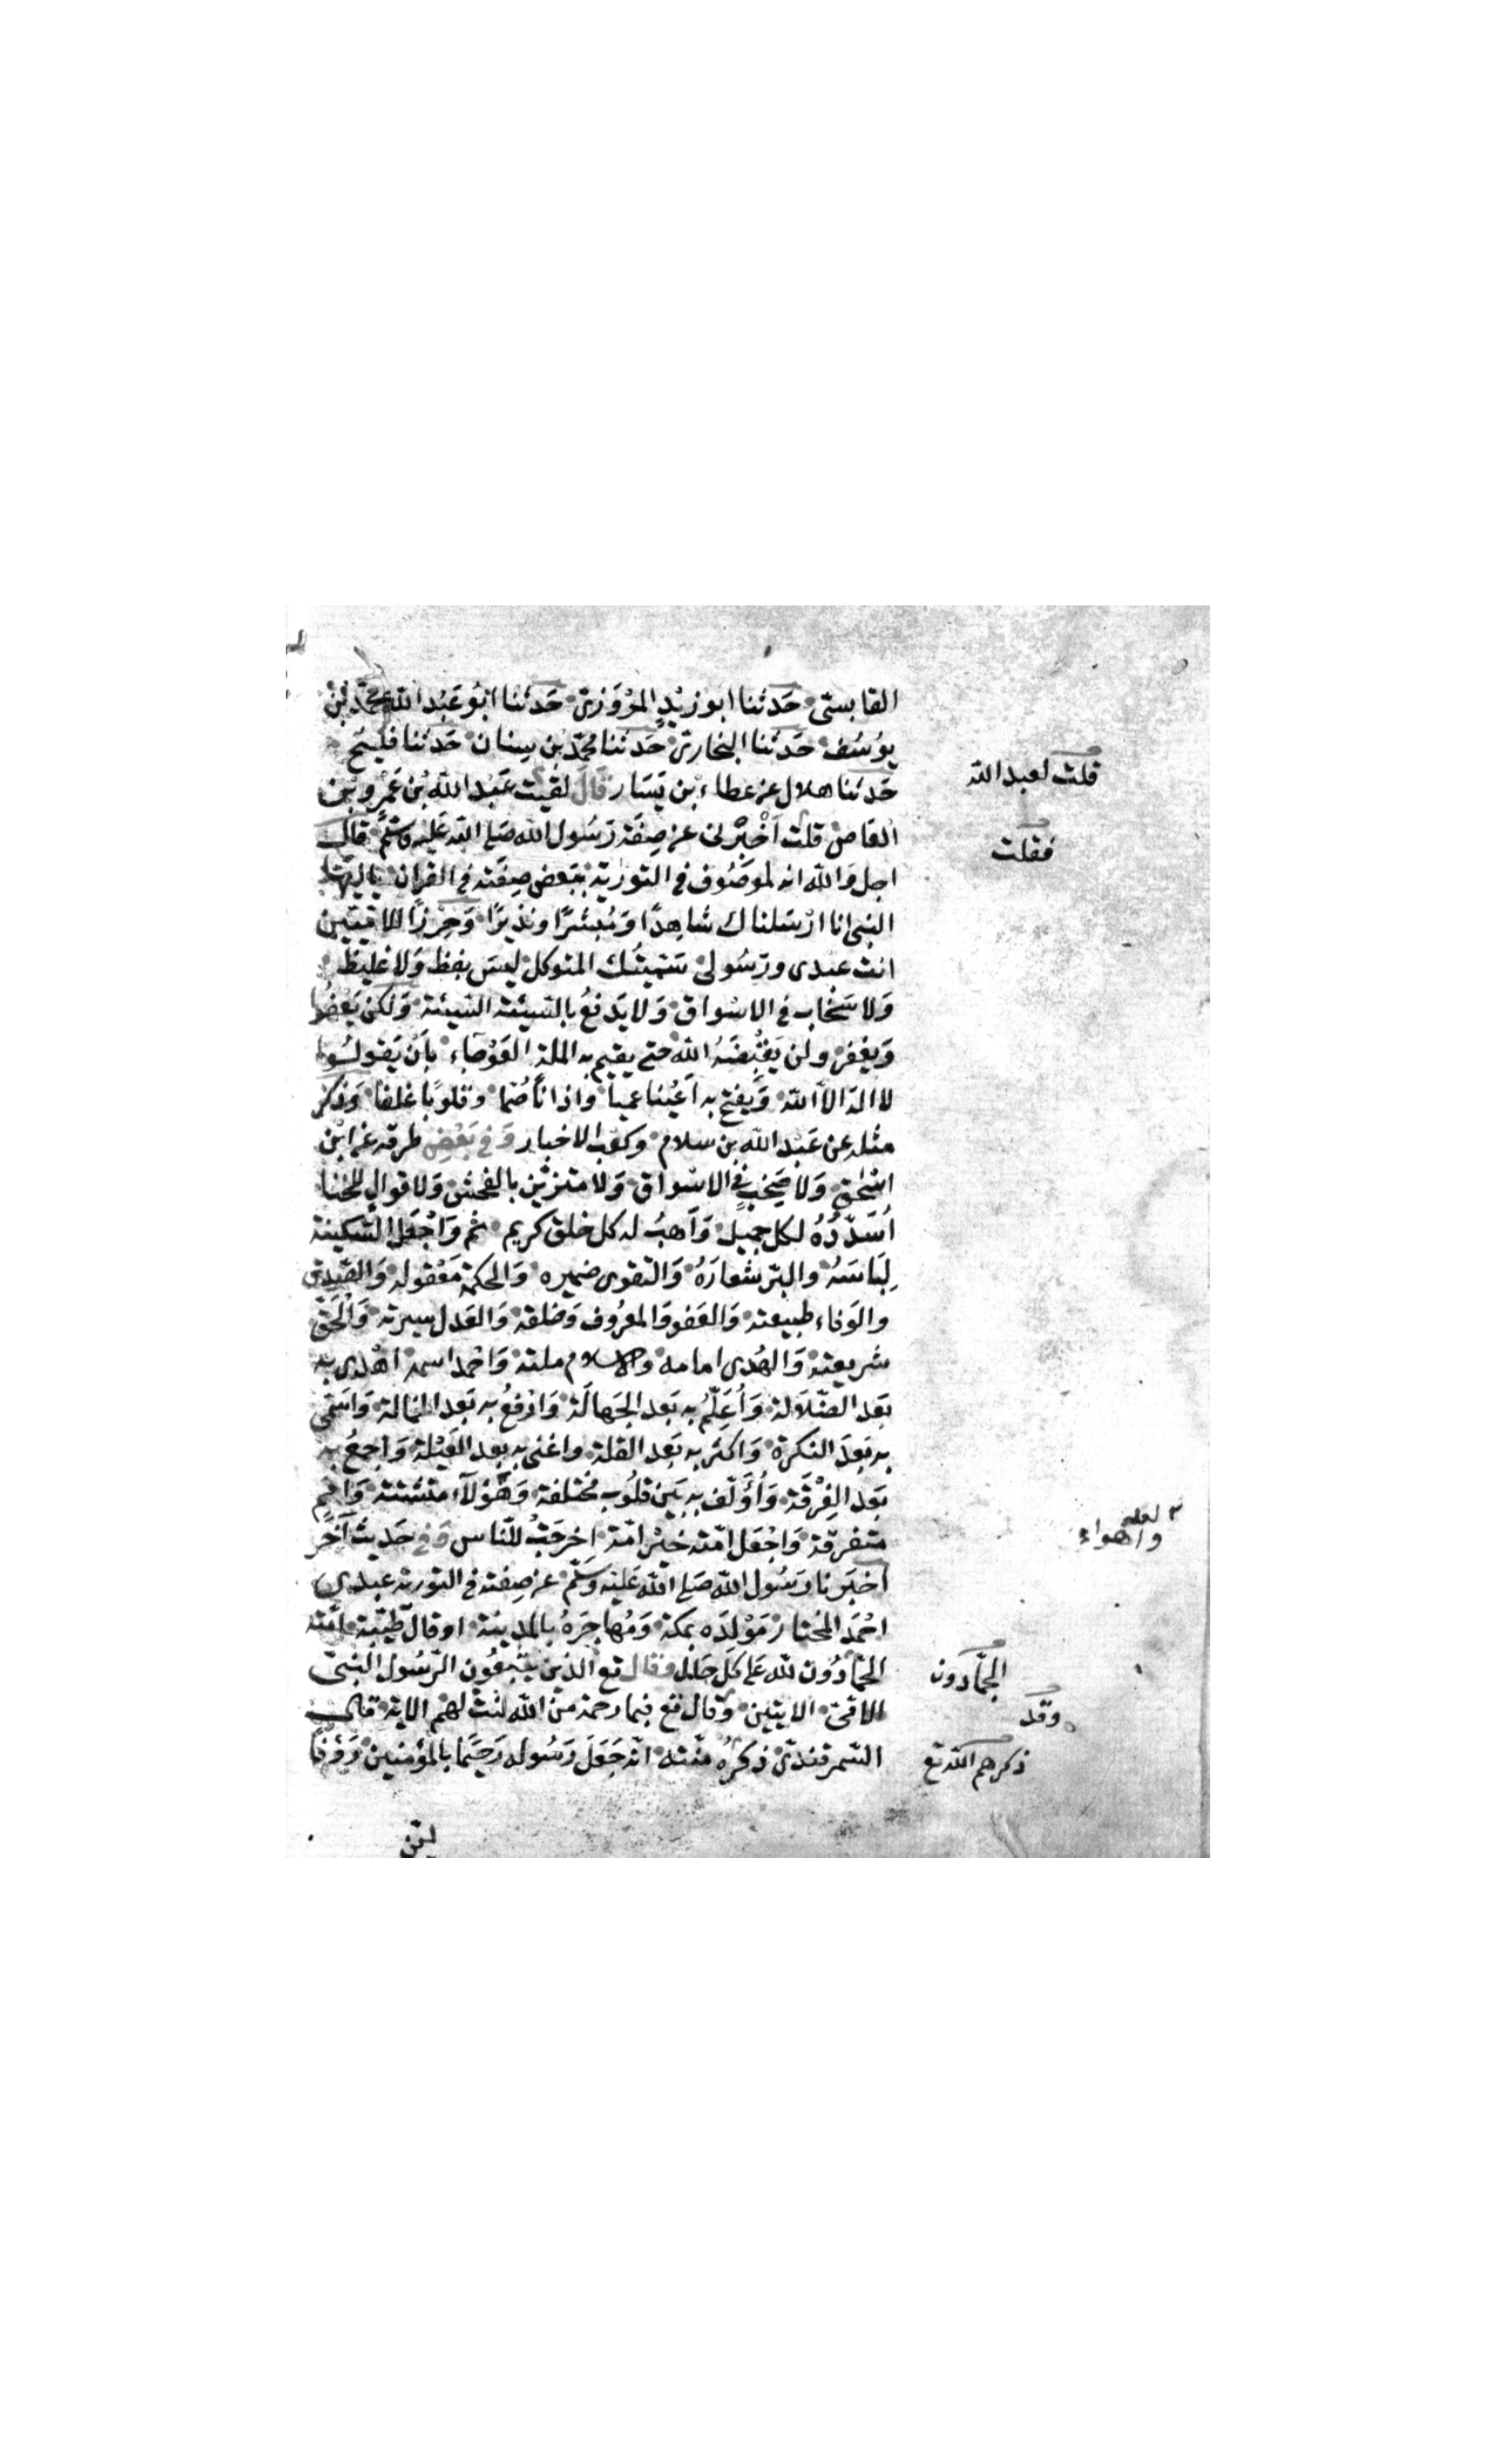 القابسي حَدثنا ابو زيْدٍ المرْوَزي حَدثنا ابُو عَبْد الله محمّد بْن
يوُسُف حَدثنا البخاري حَدثنا محمّد بْن سِنان حَدثنا فليْح
حَدثنا هلال عن عطاء بْن يَسَار قَالَ لقيت عَبْد الله بْن عَمْرو بْن
قلت لعبد الله
العَاص قلت اَخْبِرْني عن صِفَة رَسُول الله صَلى الله عَليْه وَسَلّم قال
فقلت
اجل وَالله انه لموصُوف في التوراية ببَعض صِفَته في القران يا ايّها
النبي انا ارْسَلناك شاهِدًا وَمُبشّرًا ونذيرًا وَحِرْزًا للامّيّين
انت عبدى ورَسُولى سَمّيتُك المتوكل ليسَ بفظ وَلا غليظ
وَلا سَخاب في الاسْواق وَلا يَدفعُ بالسّيئة السّيئة وَلكن يَعْفُوا
وَيغفر ولن يَقْبِضَهُ الله حتى يقيم به الملة العَوْجاء بِاَنْ يَقولوُا
لا اله الا الله وَيفتح به اَعْيُنا عميا واذانًا صُمّا وقلوبًا غلفا وَذكر
مثله عن عَبْد الله بن سلام وكعْب الاحبار وَفي بَعْضِ طرقه عن ابْن
اسْحٰق وَلا صَخِبٍ في الاسْواق وَلا متزيّن بالفحش وَلا قوال للخنا
اُسَدّدُهُ لكل جميل وَاَهبُ له كل خلق كريم ثم وَاَجْعَل السّكينة
لِبَاسَهُ والبرّ شعَارَهُ وَالتقوى ضميره وَالحكمة مَعْقوله وَالصّدق
والوَفاء طبيعته وَالعَفو وَالمعرُوف وَخلقه وَالعَدل سيرته وَالْحَقّ
شريعته وَالهُدى امامه والاسلام ملته وَاحْمد اسمه اهْدى به
بَعد الضّلالة وَاُعَلّمُ به بَعد الجَهالَة وَارْفعُ به بَعد الخمالة وَاسَمّي
به بَعدَ النكرة وَاكثر به بَعد القلة واغنى به بعد العَيْلة وَاجمعُ به
بَعد الفِرْقَة وَاُؤَلّف به بَين قلوُب مُختلفة وَهٰؤلآء متشتتة وَامم
لعله واهواء
متفرقة وَاجْعَل امّته خيْر امّة اخرجَتْ للنّاس وَفي حَديث اَخَر
اخبَرنا رَسُول الله صَلى الله عَليْه وَسَلّم عن صِفته في التورية عبدى
احْمَد المختار مَوْلدَه بمكة وَمُهاجَرَهُ بالمدينة او قال طيْبة امّته
الحمّادُون لله عَلى كل حَال وقال تع الذين يتّبعُون الرّسُول النبيّ
الحمّادون
الامّيّ الايتين وَقال تع فبما رحمة من الله لنْتَ لهم الاية قال
وقد
السّمرقندي ذكرُهُ منّته انّه جَعَلَ رَسُوله رَحيمًا بالمؤمنين رَؤفًا
ذكرهم الله تع
لين